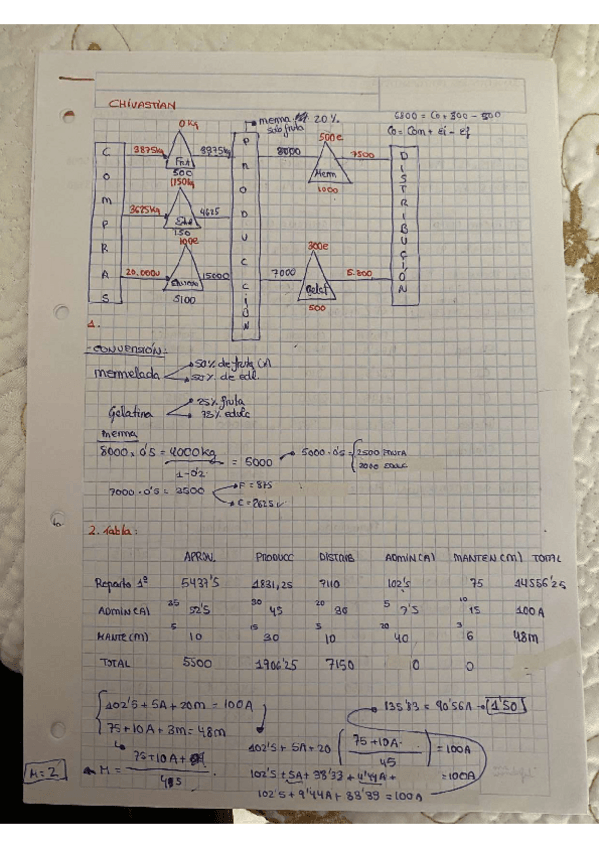 CHIVASTIAN
merma 20%.
sob fruta
6800 = Co + 300 - 500
Co = Com + Ei - Ef
0 kg
500e
3875kg
8000
7500
COMPRAS
PRODUCCIÓN
DISTRIBUCIÓN
500
Mem
1000
1150kg
3625kg
4625
150
100e
300e
20.000u
15000
7000
5.800
5100
Gelat
500
1.
-CONVERSIÓN:
mermelada
50% de fruta (M)
50% de edl.
Gelatina
25% fruta
75% edulc
merma
8000 x 0'5 = 4000kg
1-0'2
= 5000
5000·0'5 =
2500 FRUTA
7000·0'5 = 3500
F = 875
C = 2625
2. Tabla:
APROV. PRODUCC DISTRIB ADMIN(A) MANTEN(M) TOTAL
Reparto 1º 5437'5 1831,25 7110 102'5 75 14556'25
ADMIN(A) 35 52'5 30 45 20 30 5 7'5 10 15 100A
MANTE(M) 5 10 15 30 5 10 20 40 3 6 48m
TOTAL 5500 1906'25 7150 0 0
102'5 + 5A + 20m = 100A
75 + 10A + 3m = 48m
135'83 = 90'56A → 1'50
102'5 + 5A + 20 (75 + 10A / 45) = 100A
M = 75 + 10A
M = 2
102'5 + 5A + 33'33 + 4'44A = 100A
102'5 + 9'44A + 33'33 = 100A